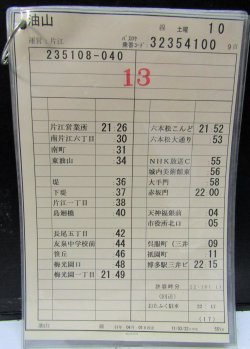 油山 線 土曜 10
運営:片江 32354100 9
235108-040
13
片江営業所 21 26 六本松こんど 21 52
南片江六丁目 30 六本松大通り 53
南町 31
東油山 34 NHK放送C 55
城内美術館東 56
堤 36 大手門 58
下堤 37 赤坂門 22 00
片江一丁目 38
鳥廻橋 40 天神福銀前 04
市役所北口 05
長尾五丁目 42
友泉中学校前 44 呉服町(三井 09
笹丘 46 祇園町 11
梅光園口 48 博多駅三井ビ 22 15
梅光園一丁目 21 49
(17)
油山